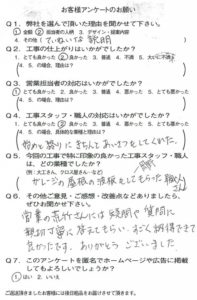 お客様アンケートのお願い
Q1. 弊社を選んで頂いた理由をお聞かせ下さい。
①金額 ②担当者の人柄 3. デザイン・提案内容
4. その他( ていねいな説明 )
Q2. 工事の仕上がりはいかがでしたか?
1. とても良かった ②良かった 3. 普通 4. 不満 5. 大いに不満
4、5の場合、理由は?
Q3. 営業担当者の対応はいかがでしたか?
1. とても良かった 2. 良かった 3. 普通 4. 悪かった 5. とても悪かった
4、5の場合、理由は?
Q4. 工事スタッフ・職人の対応はいかがでしたか?
1. とても良かった ②良かった 3. 普通 4. 悪かった 5. とても悪かった
4、5の場合、具体的な業種と理由は?
始めと終りにきちんとあいさつをしてくれた。
Q5. 今回の工事で特に印象の良かった工事スタッフ・職人
は、どの業種でしたか?
(例:大工さん、クロス屋さん・など)
ガレージの屋根の波板をしてもらった職人さん
Q6. その他ご意見・ご感想・改善点などありましたら、
ぜひお聞かせ下さい。
営業の さんには疑問や質問に
親切丁寧に答えてもらい、すごく納得できて
良かったです。ありがとうございました。
Q7. このアンケートを匿名でホームページや広告に掲載
してもよろしいでしょうか?
①はい 2. いいえ
ご返送頂きましたお客様には後日粗品をお届けさせて頂きます。